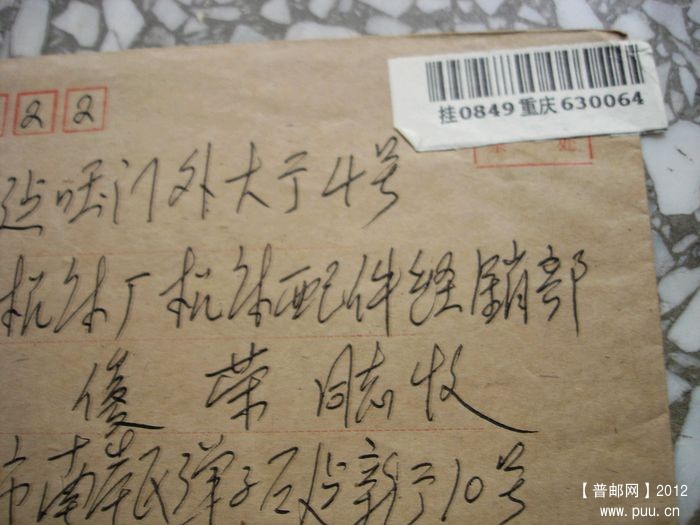 挂0849重庆630064
22
门外大厅4号
机床厂机床配件经销部
俊荣同志收
市南岸区弹子石新街10号
【普邮网】2012
www.puu.cn